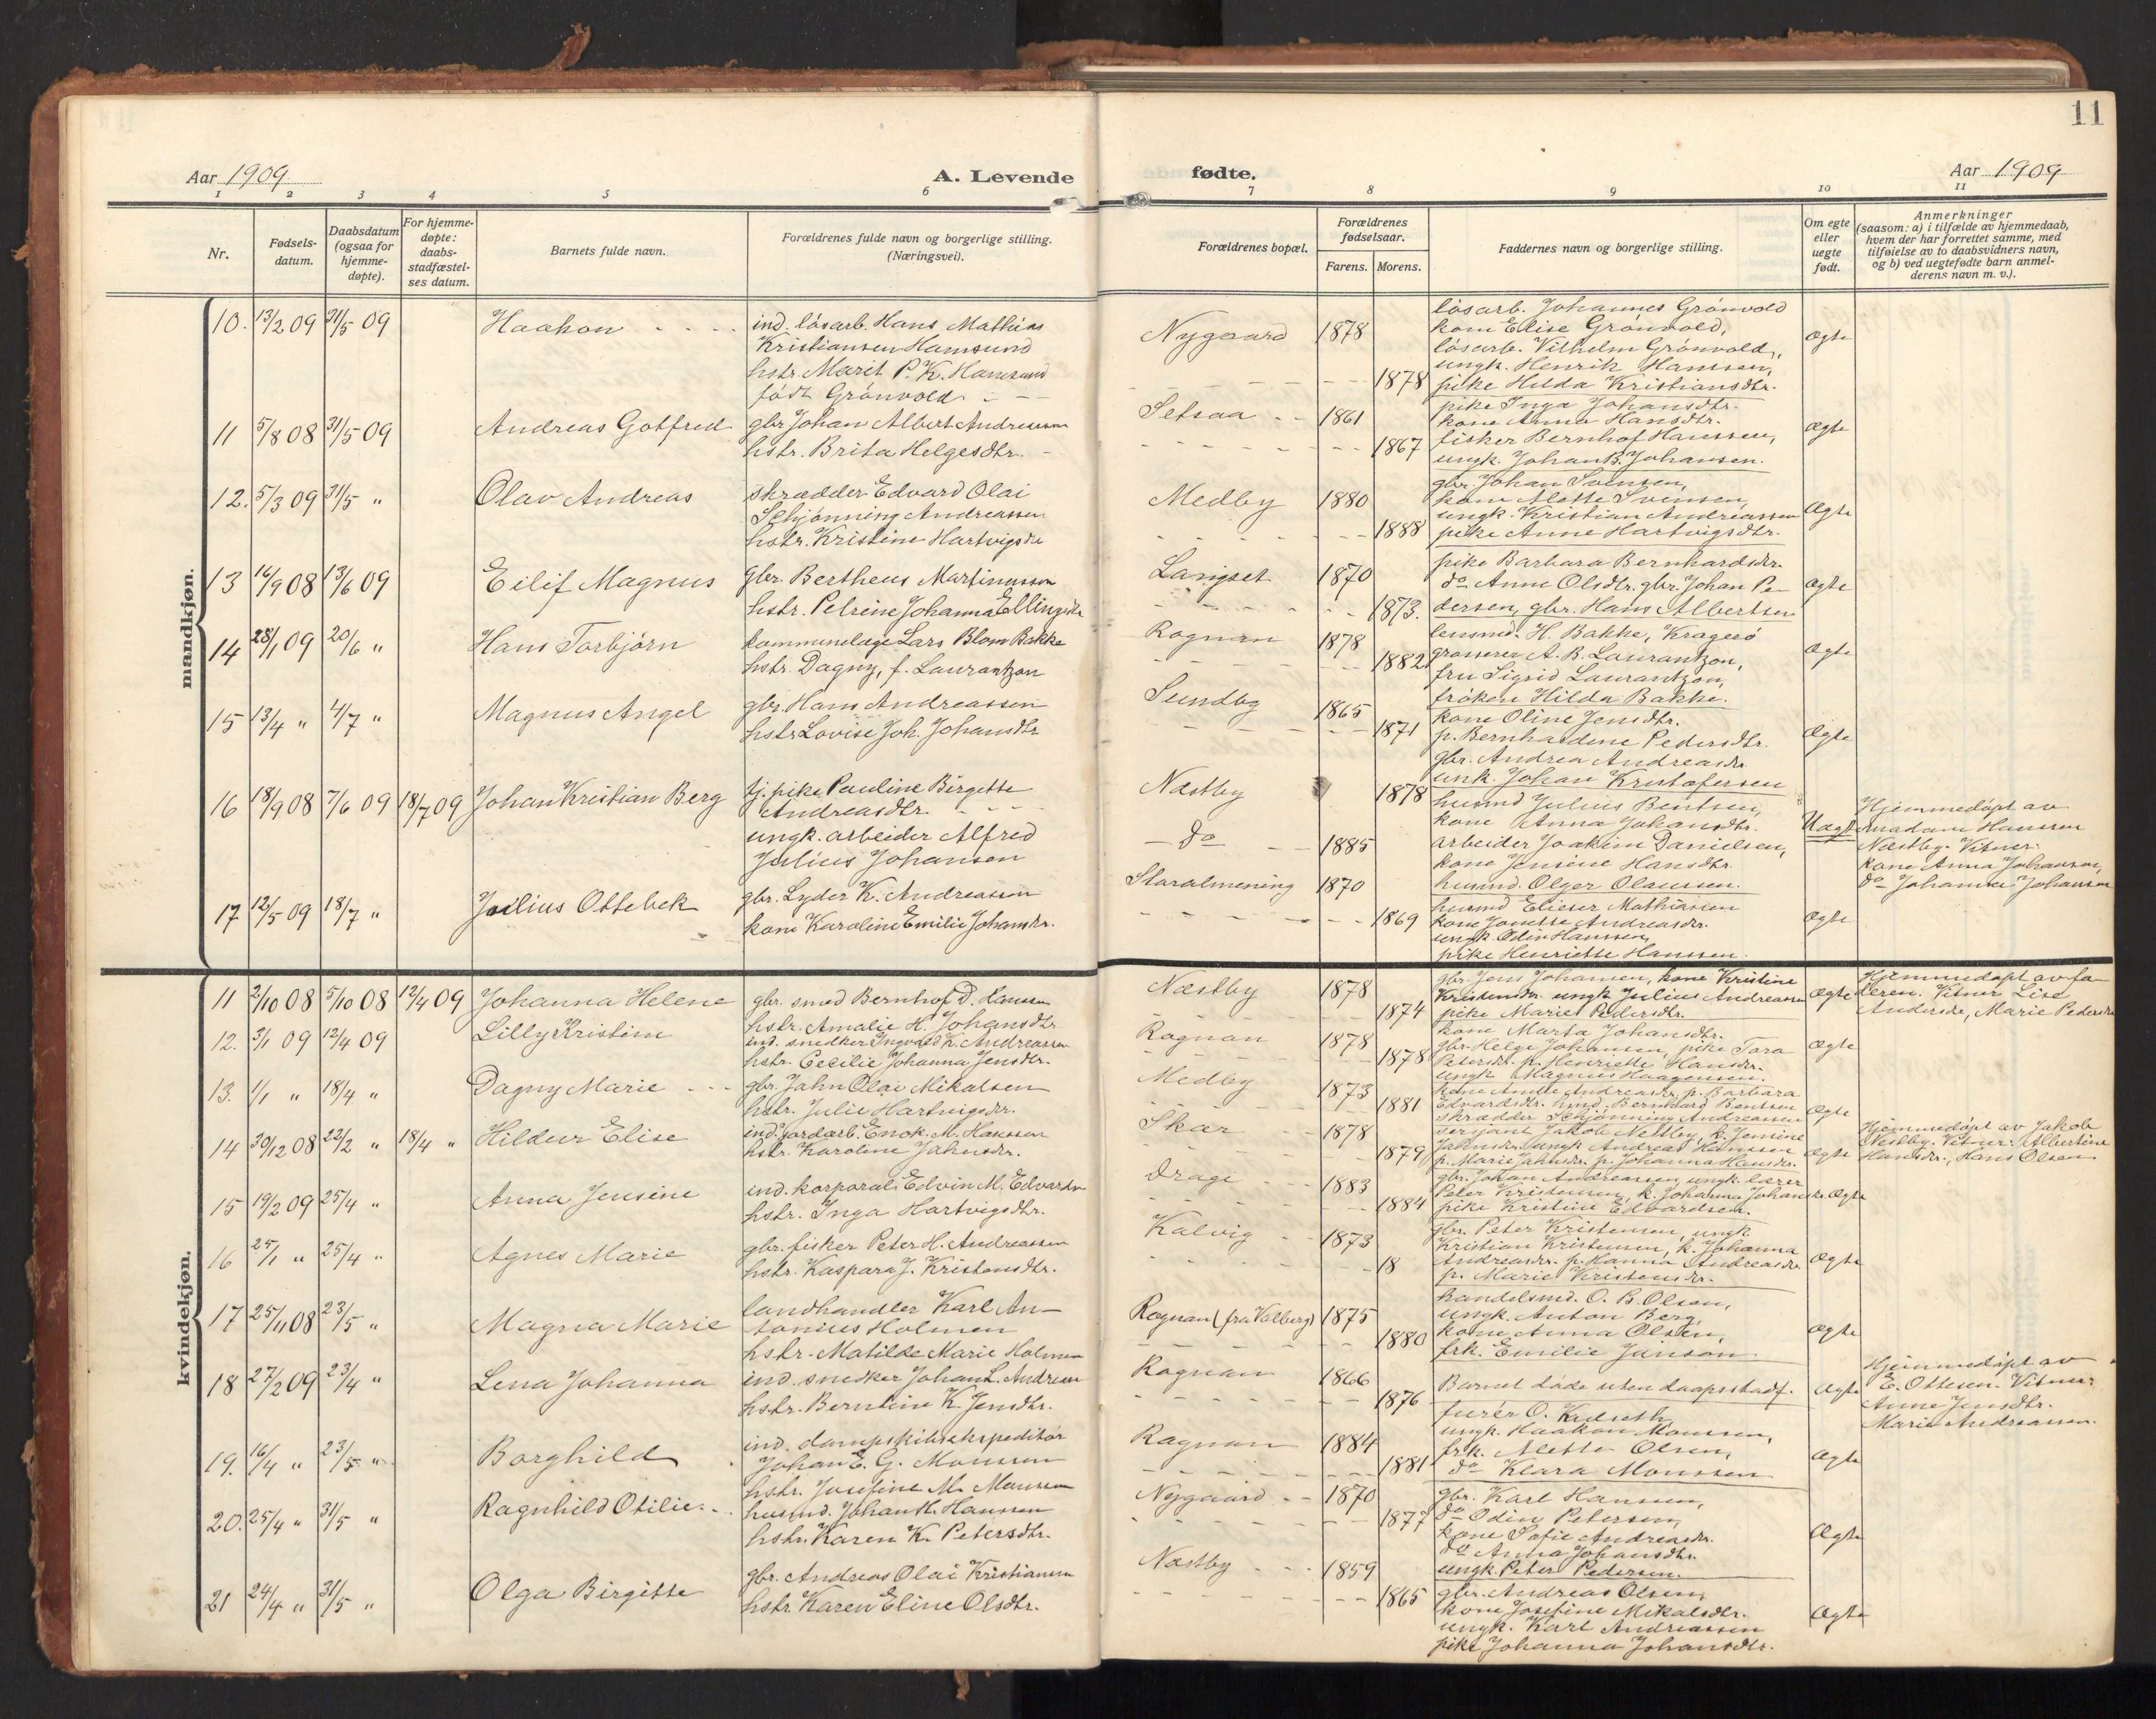 11
Aar 1909
A. Levende
fødte.
Aar 1909
1 2 3 4 5 6 7 8 9 10 11
Nr.
Fødsels-
datum.
Daabsdatum
(ogsaa for
hjemme-
døpte).
For hjemme-
døpte:
daabs-
stadfæstel-
ses datum.
Barnets fulde navn.
Forældrenes fulde navn og borgerlige stilling.
(Næringsvei).
Forældrenes bopæl.
Forældrenes
fødselsaar.
Farens. Morens.
Faddernes navn og borgerlige stilling.
Om egte
eller
uegte
født.
Anmerkninger
(saasom: a) i tilfælde av hjemmedaab,
hvem der har forrettet samme, med
tilføielse av to daabsvidners navn,
og b) ved uegtefødte barn anmel-
derens navn m. v.).
mandkjøn.
10. 13/2 09 31/5 09 Haakon
ind. løsarb. Hans Mathias
Kristiansen Hamsund
hstr. Marit P. K. Hamsund
født Grönvold
Nygaard 1878
1878
løsarb. Johannes Grönvold
kone Elise Grönvold,
løsarb. Vilhelm Grönvold,
ungk. Henrik Hanssen,
pike Hilda Kristiansdtr.
Ægte
11 5/8 08 31/5 09 Andreas Gotfred
gbr Johan Albert Andreassen
hstr. Brita Helgesdtr.
Setsaa 1861
1867
pike Inga Johansdtr.
kone Anna Hansdtr.
fisker Bernhof Hanssen,
ungk. Johan B. Johansen.
Ægte
12. 5/3 09 31/5 " Olav Andreas
skrædder Edvard Olai
Schjønning Andreassen
hstr. Kristine Hartvigsdtr
Medby 1880
1888
gbr. Johan Svensen,
kone Alette Svensen,
ungk. Kristian Andreassen
pike Anne Hartvigsdtr.
Ægte
13 16/9 08 13/6 09 Eilif Magnus
Gbr. Bertheus Martinussen
hstr. Petrine Johanna Ellingsdtr
Langset 1870
1873.
pike Barbara Bernhardsdtr.
do Anne Olsdtr. gbr. Johan Pe-
dersen, gbr. Hans Albertsen
Ægte
14 28/1 09 20/6 " Hans Torbjørn
kommunelæge Lars Blom Bakke
hstr. Dagny, f. Laurantzon
Rognan 1878
1882
lensmd. H. Bakke, Kragerø
grosserer A. B. Laurantzon,
fru Sigrid Laurantzon,
frøken Hilda Bakke.
Ægte
15 13/4 " 4/7 " Magnus Angel
gbr. Hans Andreassen
hstr Lovise Joh. Johansdtr
Sundby 1865
1871
kone Oline Jensdtr.
p. Bernhardine Pedersdtr.
gbr. Andrea Andreasdtr
unk. Johan Kristofersen
Ægte
16 18/9 08 7/6 09 18/7 09 Johan Kristian Berg
tj. pike Pauline Birgette
Andreasdtr.
ungk. arbeider Alfred
Julius Johansen
Næstby 1878
do 1885
husmd Julius Bentsen,
kone Anna Johansdtr.
arbeider Joakim Danielsen,
kone Jensine Hansdtr.
husmd. Olger Olaussen.
Uægte
Hjemmedøpt av
madam Hanssen
Næstby. Vitner:
kone Anna Johansen,
do Johanna Johansen
17 12/5 09 18/7 " Julius Ottebek
gbr. Lyder K. Andreassen
kone Karoline Emilie Johansdtr.
Staralmening 1870
1869
husmd Elieser Mathiassen
kone Jonette Andreasdtr.
ungk. Odin Hanssen,
pike Henriette Hanssen.
Ægte
kvindekjøn.
11 2/10 08 5/10 08 12/4 09 Johanna Helene
gbr. smed Bernhof D. Hanssen
hstr. Amalie H. Johansdtr
Næstby 1878
1874
gbr. Jens Johansen, kone Kristine
Kristensdtr. ungk. Julius Andreassen
pike Marie Pedersdtr.
Ægte
Hjemmedøpt av fa-
deren. Vitner Lise
Andersdtr, Marie Pedersdtr
12. 3/1 09 12/4 09 Lilly Kristine
ind. snedker Ingvald K. Andreassen
hstr. Cecilie Johanna Jensdtr.
Rognan 1878
1878
kone Marta Johansdtr.
gbr. Helge Johansen, pike Tora
Petersdtr. p. Henriette Hansdtr.
ungk. Magnus Haagensen.
Ægte
13. 1/1 " 18/4 " Dagny Marie
gbr. Jahn Olai Mikalsen
hstr. Julie Hartvigsdtr.
Medby 1873
1881
kone Andrea Andreasdtr, p. Barbara
Edvardsdtr. hmd. Bernhard Bentsen
skrædder Schjønning Andreassen
Ægte
14 30/12 08 22/2 " 18/4 " Hildur Elise
ind. jordarb. Enok. M. Hanssen
hstr. Karoline Jahnsdtr.
Skar 1878
1879
Serjant Jakob Nestby, k. Jensine
Jahnsdtr. ungk. Andreas Hanssen
p. Marie Jahnsdtr. p. Johanna Hansdtr.
Ægte
Hjemmedøpt av Jakob
Nestby. Vitner: Albertine
Hansdtr., Hans Olsen
15 19/2 09 25/4 " Anna Jensine
ind. korporal Edvin M. Edvardsen
hstr. Inga Hartvigsdtr.
Drage 1883
1884
gbr. Johan Andreassen, ungk. lærer
Peter Kristensen, k. Johanna Johansdtr.
pike Kristine Edvardsen.
Ægte
16 25/1 " 25/4 " Agnes Marie
gbr. fisker Peter H. Andreassen
hstr. Kaspara J. Kristensdtr.
Kalvig 1873
18
gbr. Peter Kristensen, ungk.
Kristian Kristensen, k. Johanna
Andreasdtr. p. Hanna Andreasdtr
p. Marie Kristensdtr.
Ægte
17 25/11 08 23/5 " Magna Marie
landhandler Karl An-
tonius Holmen
hstr. Matilde Marie Holmen
Rognan (fra Valberg) 1875
1880
handelsmd. O. B. Olsen,
ungk. Anton Berg,
kone Anna Olsen,
frk. Emilie Janson.
Ægte
18 27/2 09 23/4 " Lena Johanna
ind. snedker Johan L. Andreassen
hstr. Berntine K. Jensdtr.
Rognan 1866
1876
Barnet døde uten daapsstadf.
Ægte
Hjemmedøpt av
E. Ottesen. Vitner:
Anne Jensdtr.
Marie Andreassen.
19. 16/4 " 23/5 " Borghild
ind. dampskibsekspeditør
Johan E. G. Monssen
hstr. Josefine M. Monssen
Rognan 1884
1881
furér O. Kidseth,
ungk. Haakon Monssen,
frk. Alette Olsen,
do Klara Monssen
Ægte
20. 25/4 " 31/5 " Ragnhild Otilie
husmd. Johan K. Hanssen
hstr. Karen K. Petersdtr.
Nygaard 1870
1877
gbr. Karl Hansen,
do Odin Petersen,
kone Sofie Andreasdtr.
do Anna Johansdtr.
ungk. Peter Pedersen.
Ægte
21 24/4 " 31/5 " Olga Birgitte
gbr. Andreas Olai Kristiansen
hstr. Karen Eline Olsdtr.
Næstby 1859
1865
gbr. Andreas Olsen,
kone Josefine Mikalsdtr.
ungk. Karl Andreassen
pike Johanna Johansdtr.
Ægte